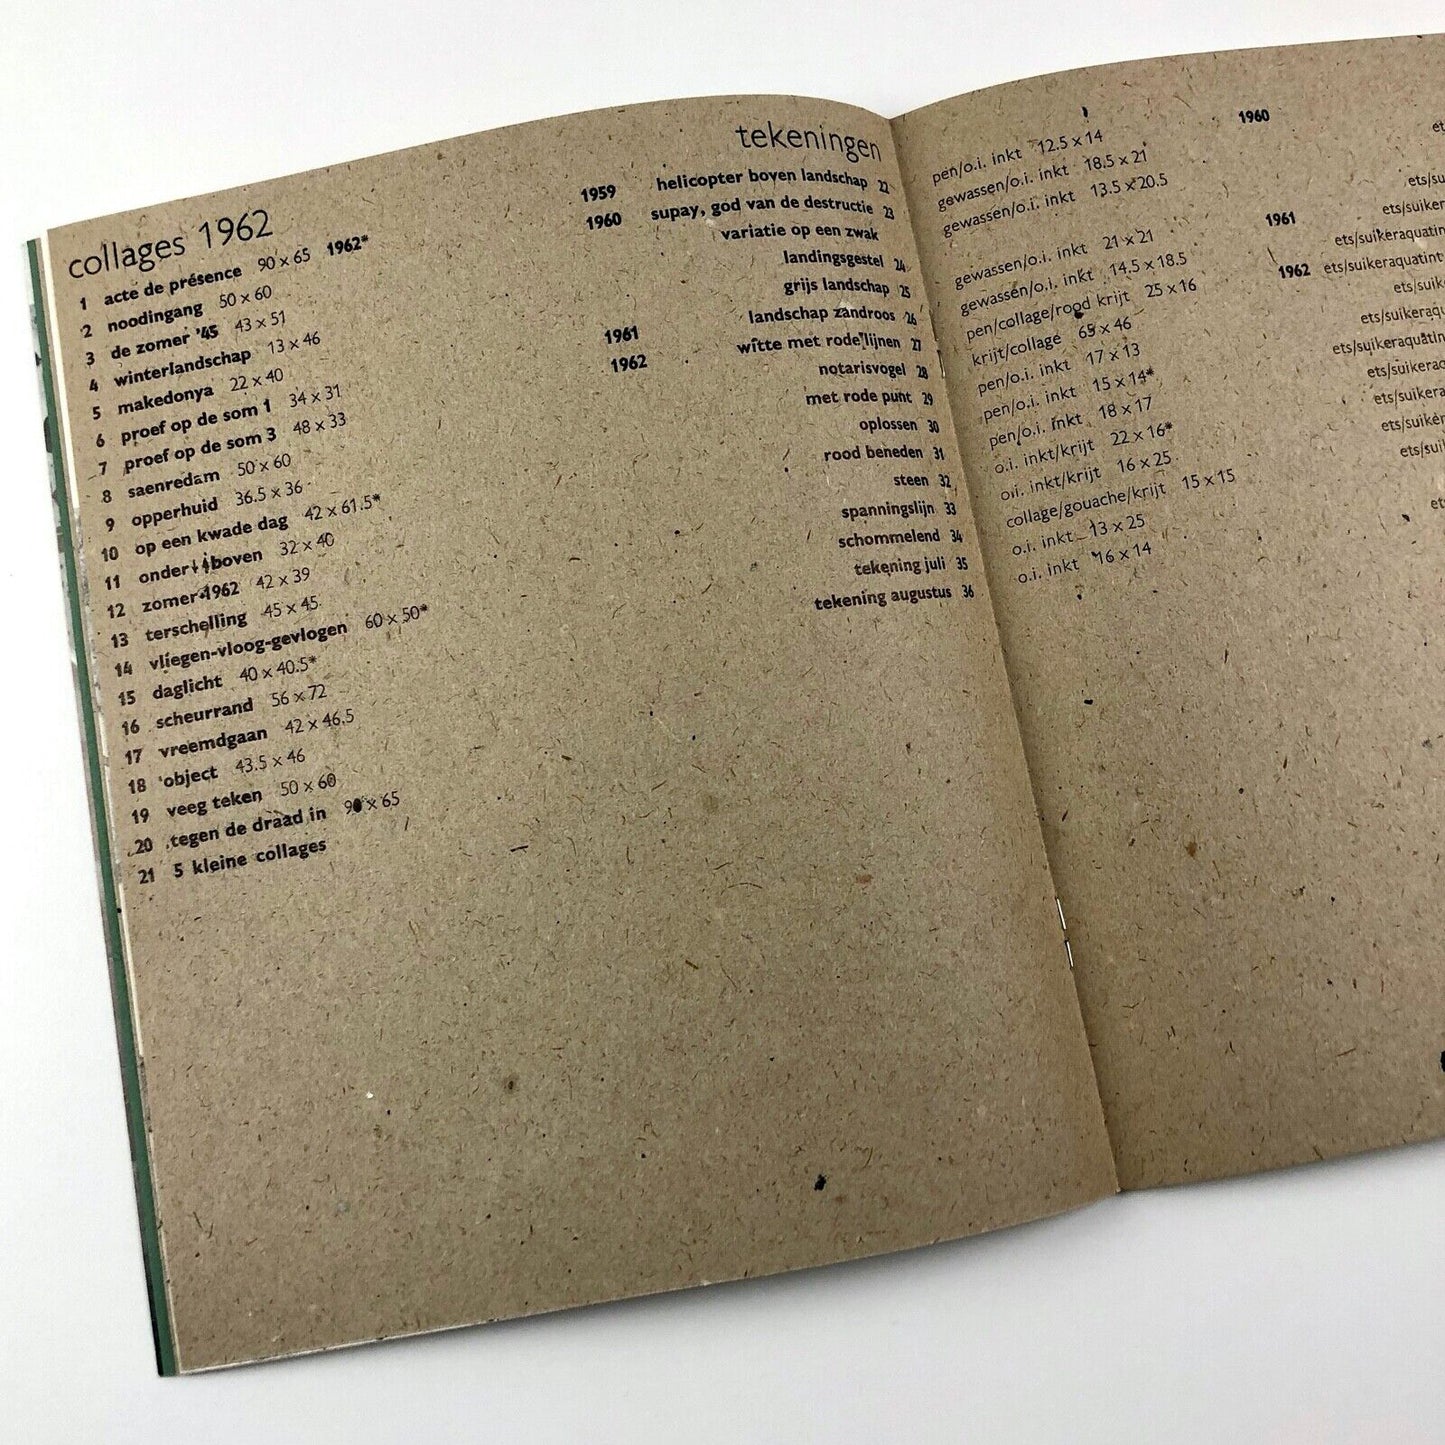 collages 1962
1 acte de présence 90 x 65 1962*
2 noodingang 50 x 60
3 de zomer '45 43 x 51
4 winterlandschap 13 x 46
5 makedonya 22 x 40
6 proef op de som 1 34 x 31
7 proef op de som 3 48 x 33
8 saenredam 50 x 60
9 opperhuid 36.5 x 36
10 op een kwade dag 42 x 61.5*
11 onder↓↓boven 32 x 40
12 zomer 1962 42 x 39
13 terschelling 45 x 45
14 vliegen-vloog-gevlogen 60 x 50*
15 daglicht 40 x 40.5*
16 scheurrand 56 x 72
17 vreemdgaan 42 x 46.5
18 object 43.5 x 46
19 veeg teken 50 x 60
20 tegen de draad in 90 x 65
21 5 kleine collages
tekeningen
1959 helicopter boven landschap 22
1960 supay, god van de destructie 23
variatie op een zwak
landingsgestel 24
grijs landschap 25
landschap zandroos 26
1961 witte met rode lijnen 27
1962 notarisvogel 28
met rode punt 29
oplossen 30
rood beneden 31
steen 32
spanningslijn 33
schommelend 34
tekening juli 35
tekening augustus 36
pen/o.i. inkt 12.5 x 14
gewassen/o.i. inkt 18.5 x 21
gewassen/o.i. inkt 13.5 x 20.5
gewassen/o.i. inkt 21 x 21
gewassen/o.i. inkt 14.5 x 18.5
pen/collage/rood krijt 25 x 16
krijt/collage 65 x 46
pen/o.i. inkt 17 x 13
pen/o.i. inkt 15 x 14*
pen/o.i. inkt 18 x 17
o.i. inkt/krijt 22 x 16*
o.i. inkt/krijt 16 x 25
collage/gouache/krijt 15 x 15
o.i. inkt 13 x 25
o.i. inkt 16 x 14
1960
et
ets/su
ets/suiker
1961 ets/suikeraquatint
1962 ets/suikeraquatint
ets/suike
ets/suikeraqu
ets/suikeraquatin
ets/suikeraq
ets/suikera
ets/suiker
ets/suil
ets